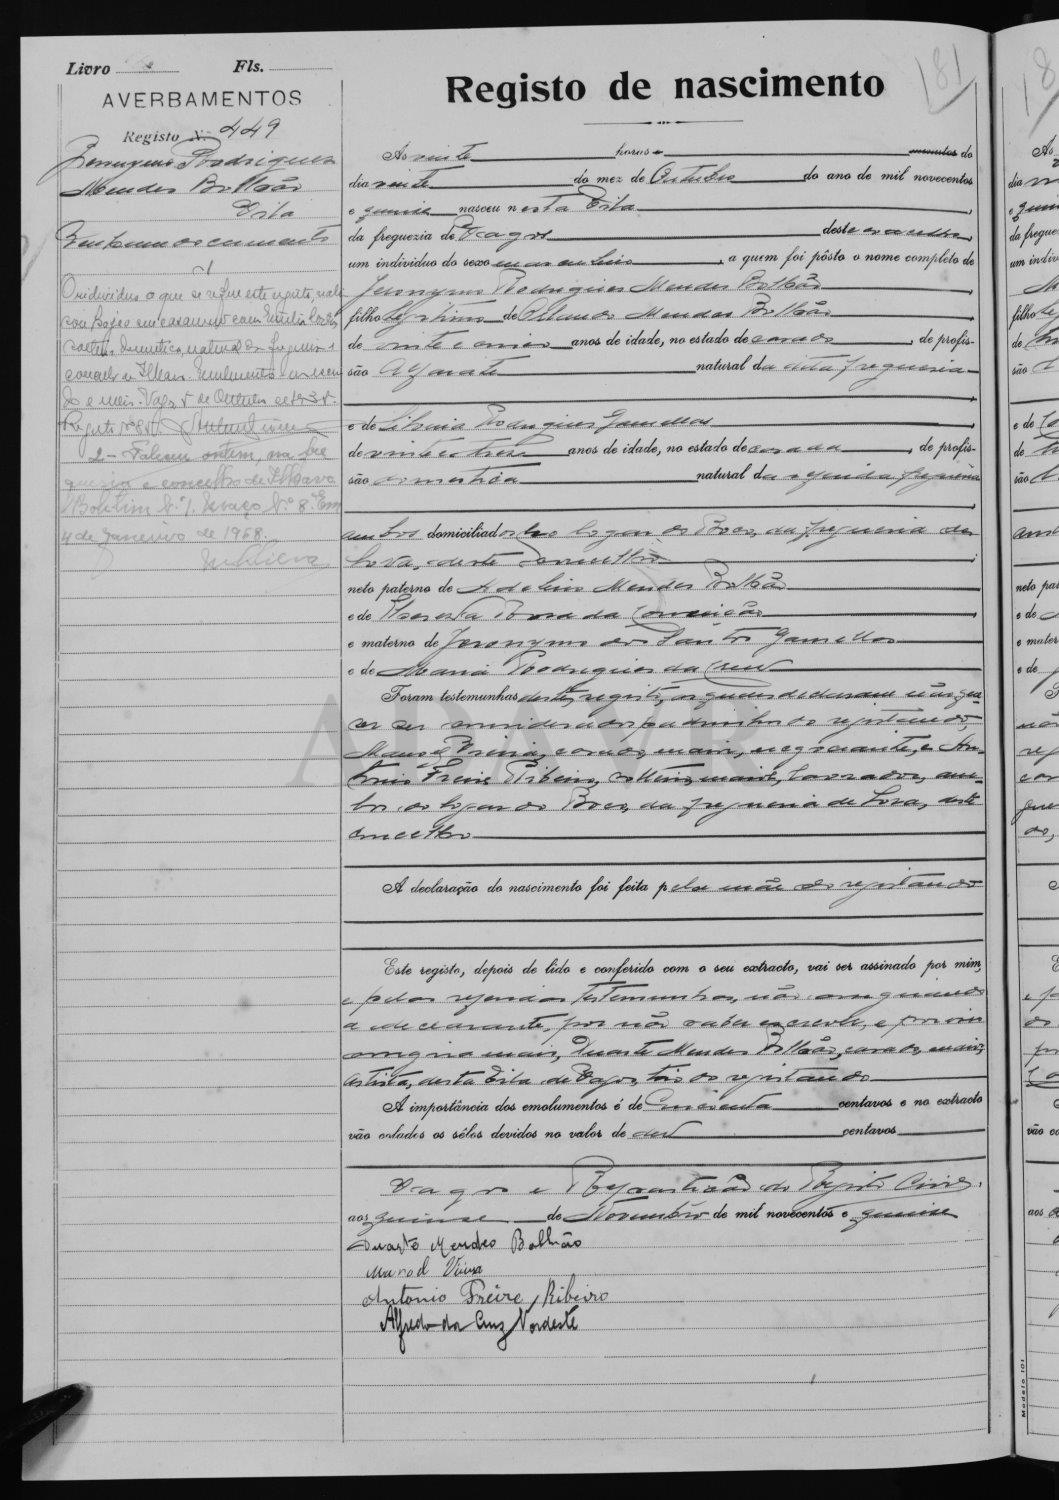 Livro Fls.
AVERBAMENTOS
Registo N.º 449
Jeronymo Rodrigues
Mendes Bolhão
Vila
Nenhum documento
1
O individuo a que se refere este registo,
casou em casamento com
natural da freguesia e
concelho de Ilhavo.
Vagos, de Outubro de
Registo nº
2 - Faleceu ontem, na fre
guesia e concelho de Ilhavo
Boletim N.º 1. Maço N.º 8. Em
4 de Janeiro de 1968.
181
Registo de nascimento
Ás vinte horas e minutos do
dia vinte do mez de Outubro do ano de mil novecentos
e quinze nasceu n esta Vila
da freguezia de Vagos deste concelho,
um individuo do sexo masculino, a quem foi pôsto o nome completo de
Jeronymo Rodrigues Mendes Bolhão
filho legitimo de Mendes Bolhão
de vinte e cinco anos de idade, no estado de casado, de profis-
são Alfaiate natural da dita freguezia
e de Silvina Rodrigues Gamellas
de vinte e tres anos de idade, no estado de casada, de profis-
são domestica natural da segunda freguezia
ambos domiciliados no logar do Boco, da freguezia de
Soza, deste concelho
neto paterno de Adelino Mendes Bolhão
e de Thereza Rosa da Conceição
e materno de Jeronymo dos Santos Gamellas
e de Maria Rodrigues da Cruz
Foram testemunhas deste registo, os quaes declararam não que
rer ser considerados padrinhos do registando,
Manoel Vieira, casado, maior, negociante, e An-
tonio Freire Ribeiro, solteiro, maior, lavrador, am-
bos do logar do Boco, da freguezia de Soza, deste
concelho
A declaração do nascimento foi feita pela mãe do registando
Este registo, depois de lido e conferido com o seu extracto, vai ser assinado por mim,
e pelas referidas testemunhas, não assignando
a declarante, por não saber escrever, e por isso
assigna mais, Duarte Mendes Bolhão, casado, maior,
artista, desta Vila de Vagos, tio do registando
A importância dos emolumentos é de Cincoenta centavos e no extracto
vão colados os sêlos devidos no valor de dez centavos
Vagos e Repartição do Registo Civil,
aos quinze de Novembro de mil novecentos e quinze
Duarte Mendes Bolhão
Manoel Vieira
Antonio Freire Ribeiro
Alfredo da Cruz Nordeste
AAVR
Modelo 101